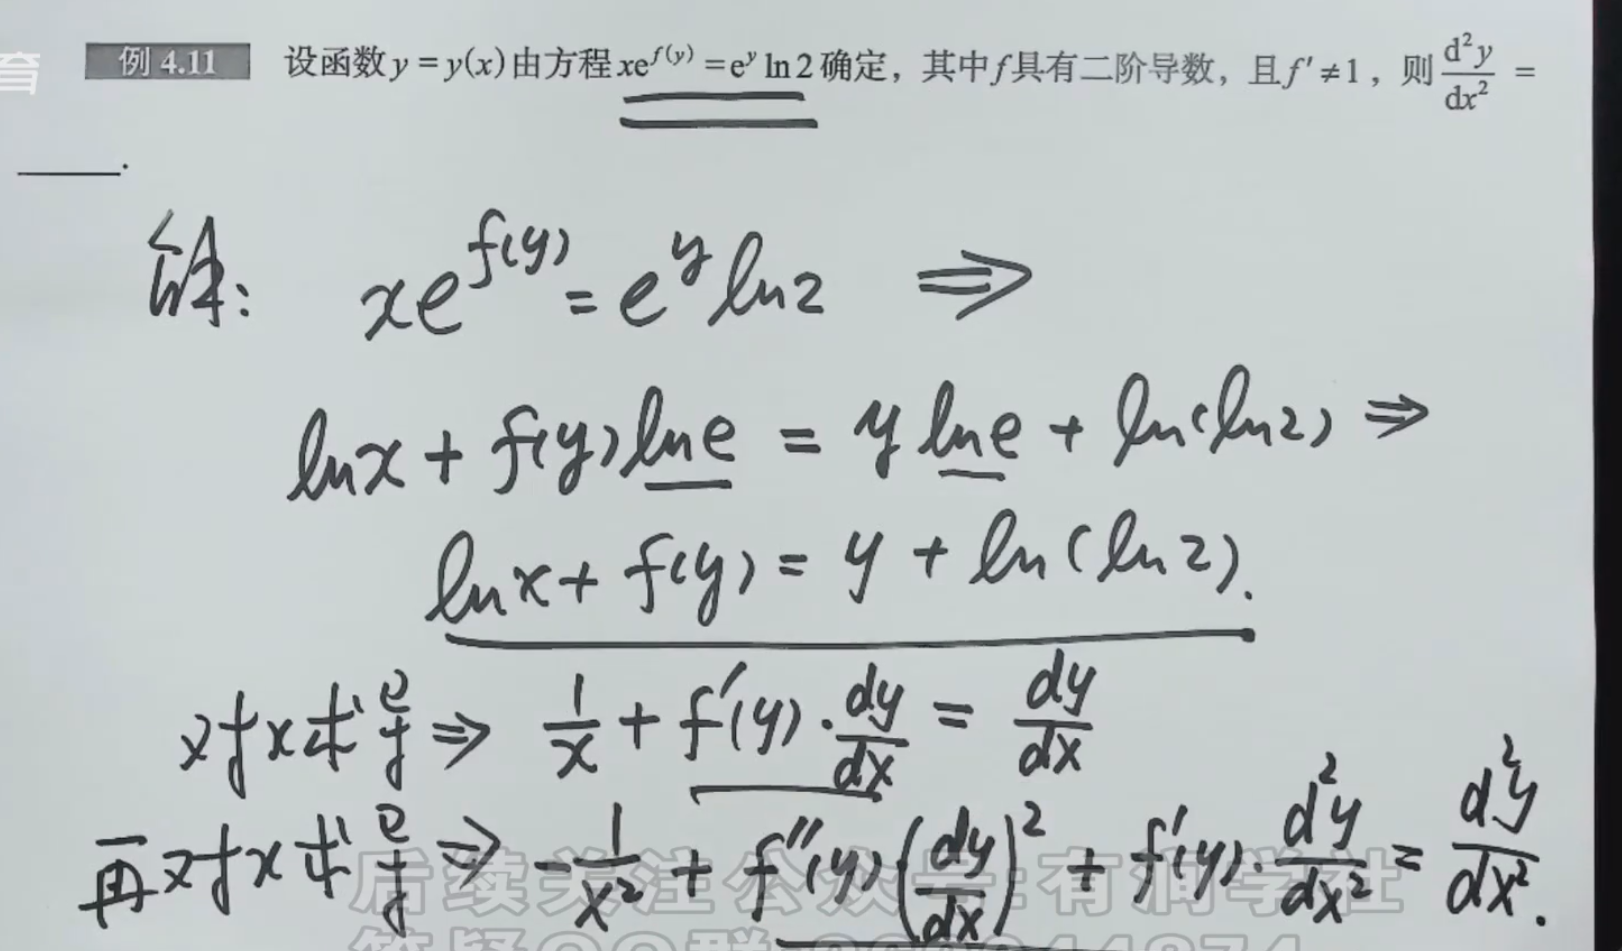 育
例 4.11 设函数 y = y(x) 由方程 xe^{f(y)} = e^y ln 2 确定，其中 f 具有二阶导数，且 f′ ≠ 1，则 \frac{d^2y}{dx^2} =
______.
解: xe^{f(y)} = e^y ln2 ⇒
lnx + f(y)lne = y lne + ln(ln2) ⇒
lnx + f(y) = y + ln(ln2).
对x求导 ⇒ \frac{1}{x} + f′(y)·\frac{dy}{dx} = \frac{dy}{dx}
再对x求导 ⇒ -\frac{1}{x^2} + f″(y)(\frac{dy}{dx})^2 + f′(y)·\frac{d^2y}{dx^2} = \frac{d^2y}{dx^2}.
后续关注公众号:有润学社